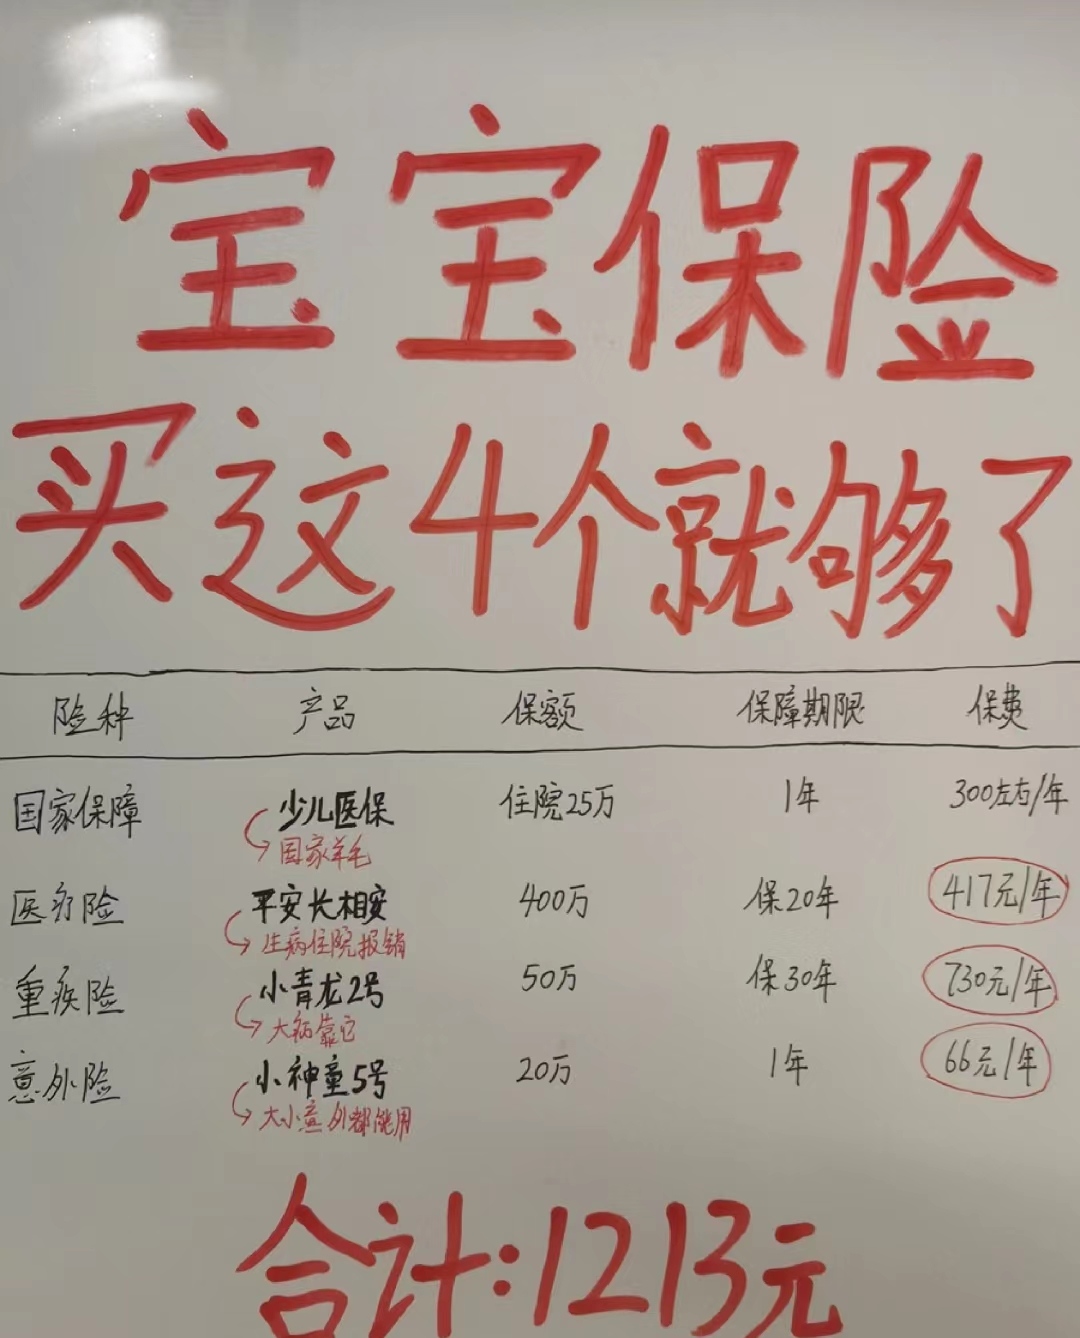 宝宝保险
买这4个就够了
险种 产品 保额 保障期限 保费
国家保障 少儿医保 住院25万 1年 300左右/年
国家羊毛
医疗险 平安长相安 400万 保20年 417元/年
生病住院报销
重疾险 小青龙2号 50万 保30年 730元/年
大病靠它
意外险 小神童5号 20万 1年 66元/年
大小意外都能用
合计:1213元